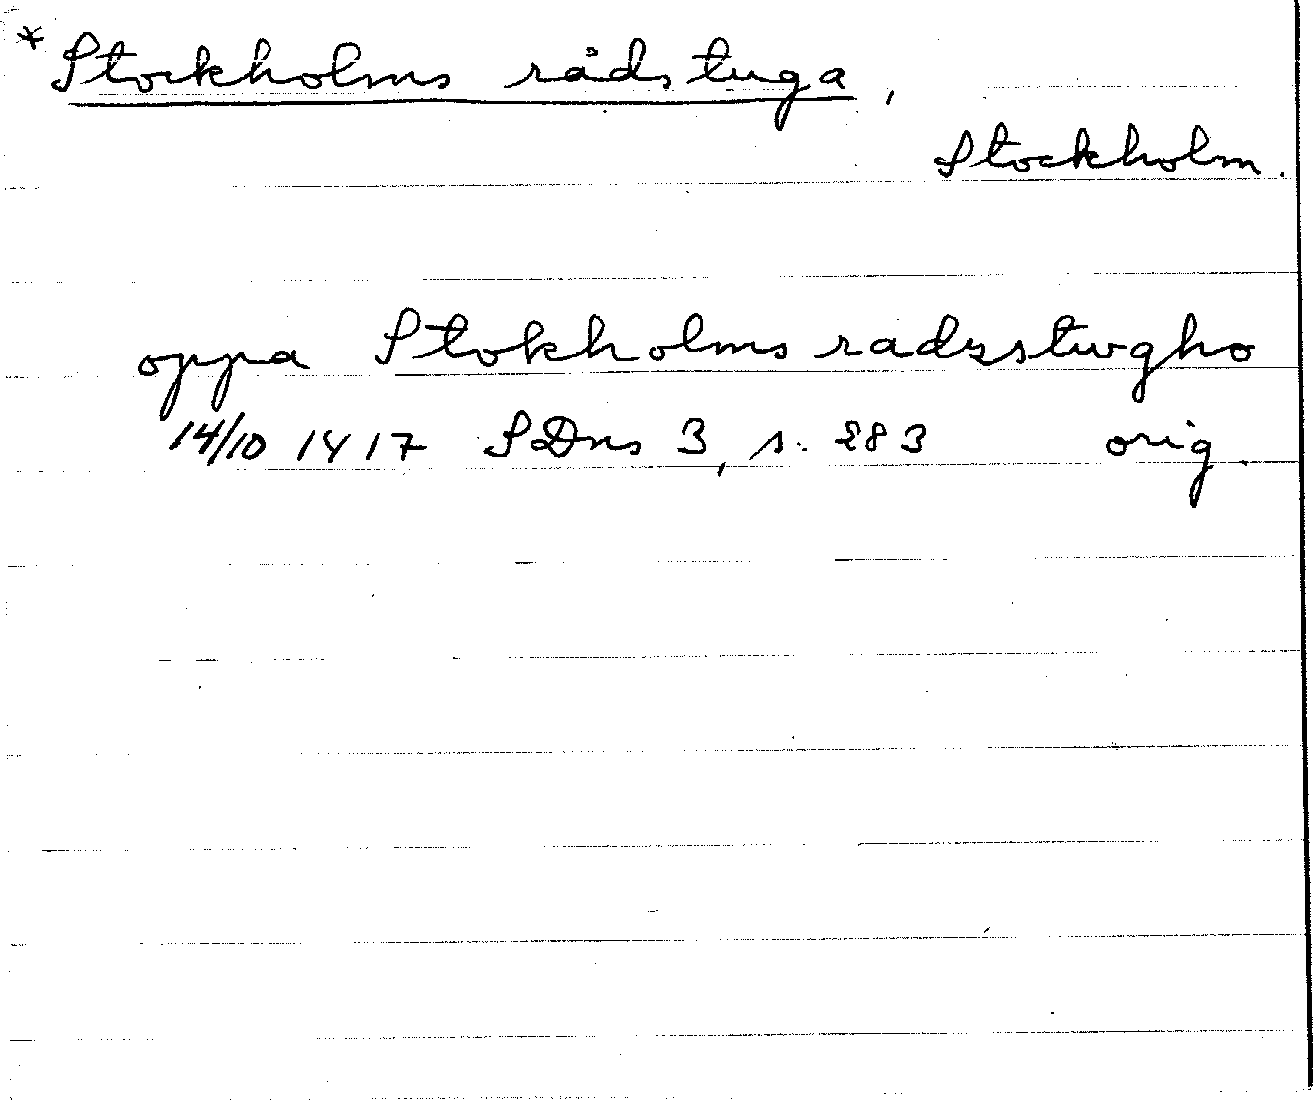 *Stockholms rådstuga,
Stockholm.
oppa Stokholms radzstwgho
14/10 1417 SDns 3, s. 283 orig.